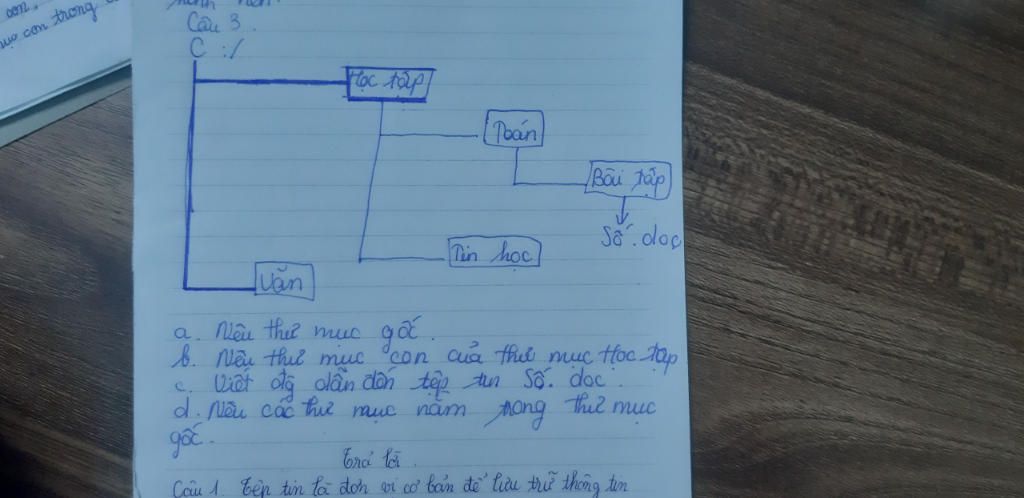 con.
con trong
Câu 3.
C :/
Học tập
Toán
Bài tập
Số.doc
Tin học
Văn
a. Nêu thư mục gốc.
b. Nêu thư mục con của thư mục Học tập
c. Viết đg dẫn đến tệp tin Số.doc.
d. Nêu các thư mục nằm trong thư mục
gốc.
Trả lời
Câu 1. Tệp tin là đơn vị cơ bản để lưu trữ thông tin